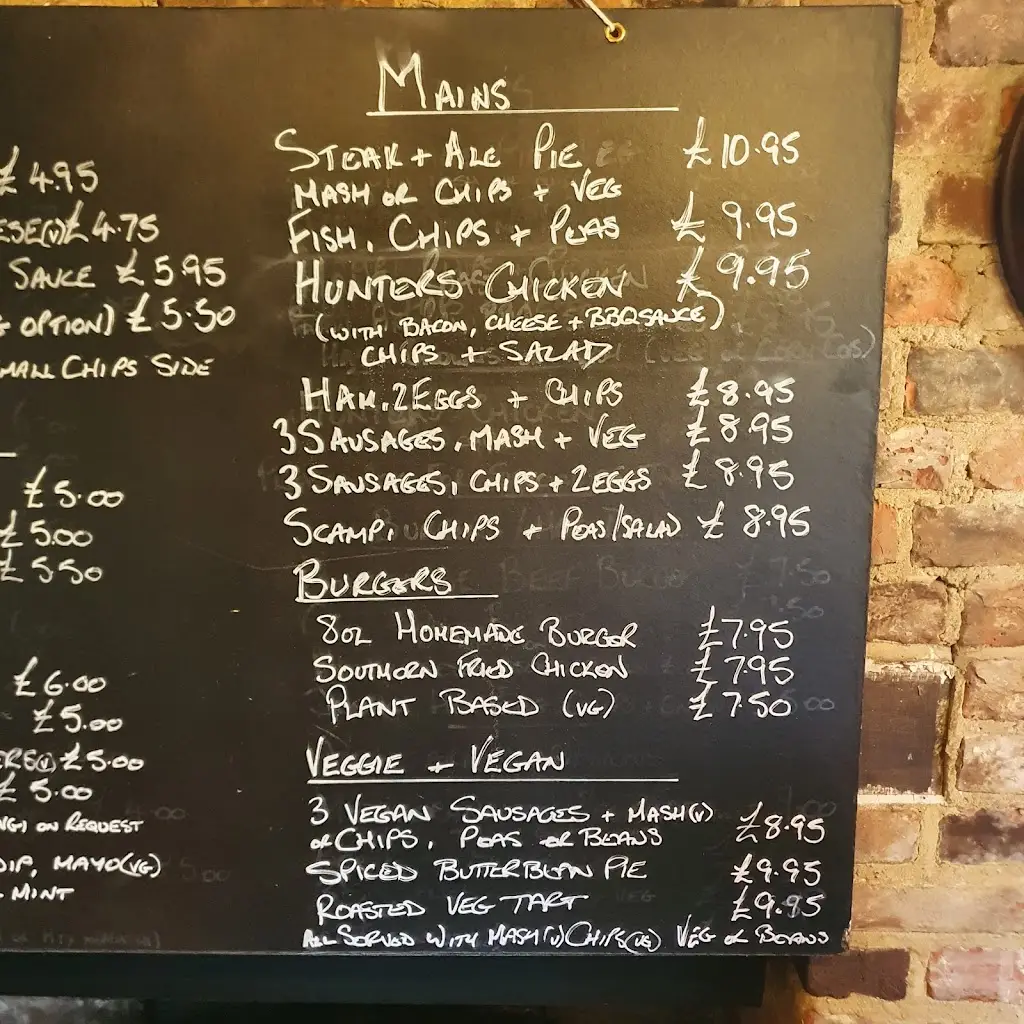 £4.95
ESE(V) £4.75
SAUCE £5.95
G OPTION) £5.50
MALL CHIPS SIDE
£5.00
£5.00
£5.50
£6.00
£5.00
ERS(V) £5.00
£5.00
(VG) ON REQUEST
DIP, MAYO(VG)
MINT
MAINS
STEAK + ALE PIE £10.95
MASH OR CHIPS + VEG
FISH, CHIPS + PEAS £9.95
HUNTERS CHICKEN £9.95
(WITH BACON, CHEESE + BBQ SAUCE)
CHIPS + SALAD
HAM, 2 EGGS + CHIPS £8.95
3 SAUSAGES, MASH + VEG £8.95
3 SAUSAGES, CHIPS + 2 EGGS £8.95
SCAMPI CHIPS + PEAS/SALAD £8.95
BURGERS
8OZ HOMEMADE BURGER £7.95
SOUTHERN FRIED CHICKEN £7.95
PLANT BASED (VG) £7.50
VEGGIE + VEGAN
3 VEGAN SAUSAGES + MASH(V)
OR CHIPS, PEAS OR BEANS £8.95
SPICED BUTTERBEAN PIE £9.95
ROASTED VEG TART £9.95
ALL SERVED WITH MASH(V) CHIPS(VG) VEG OR BEANS